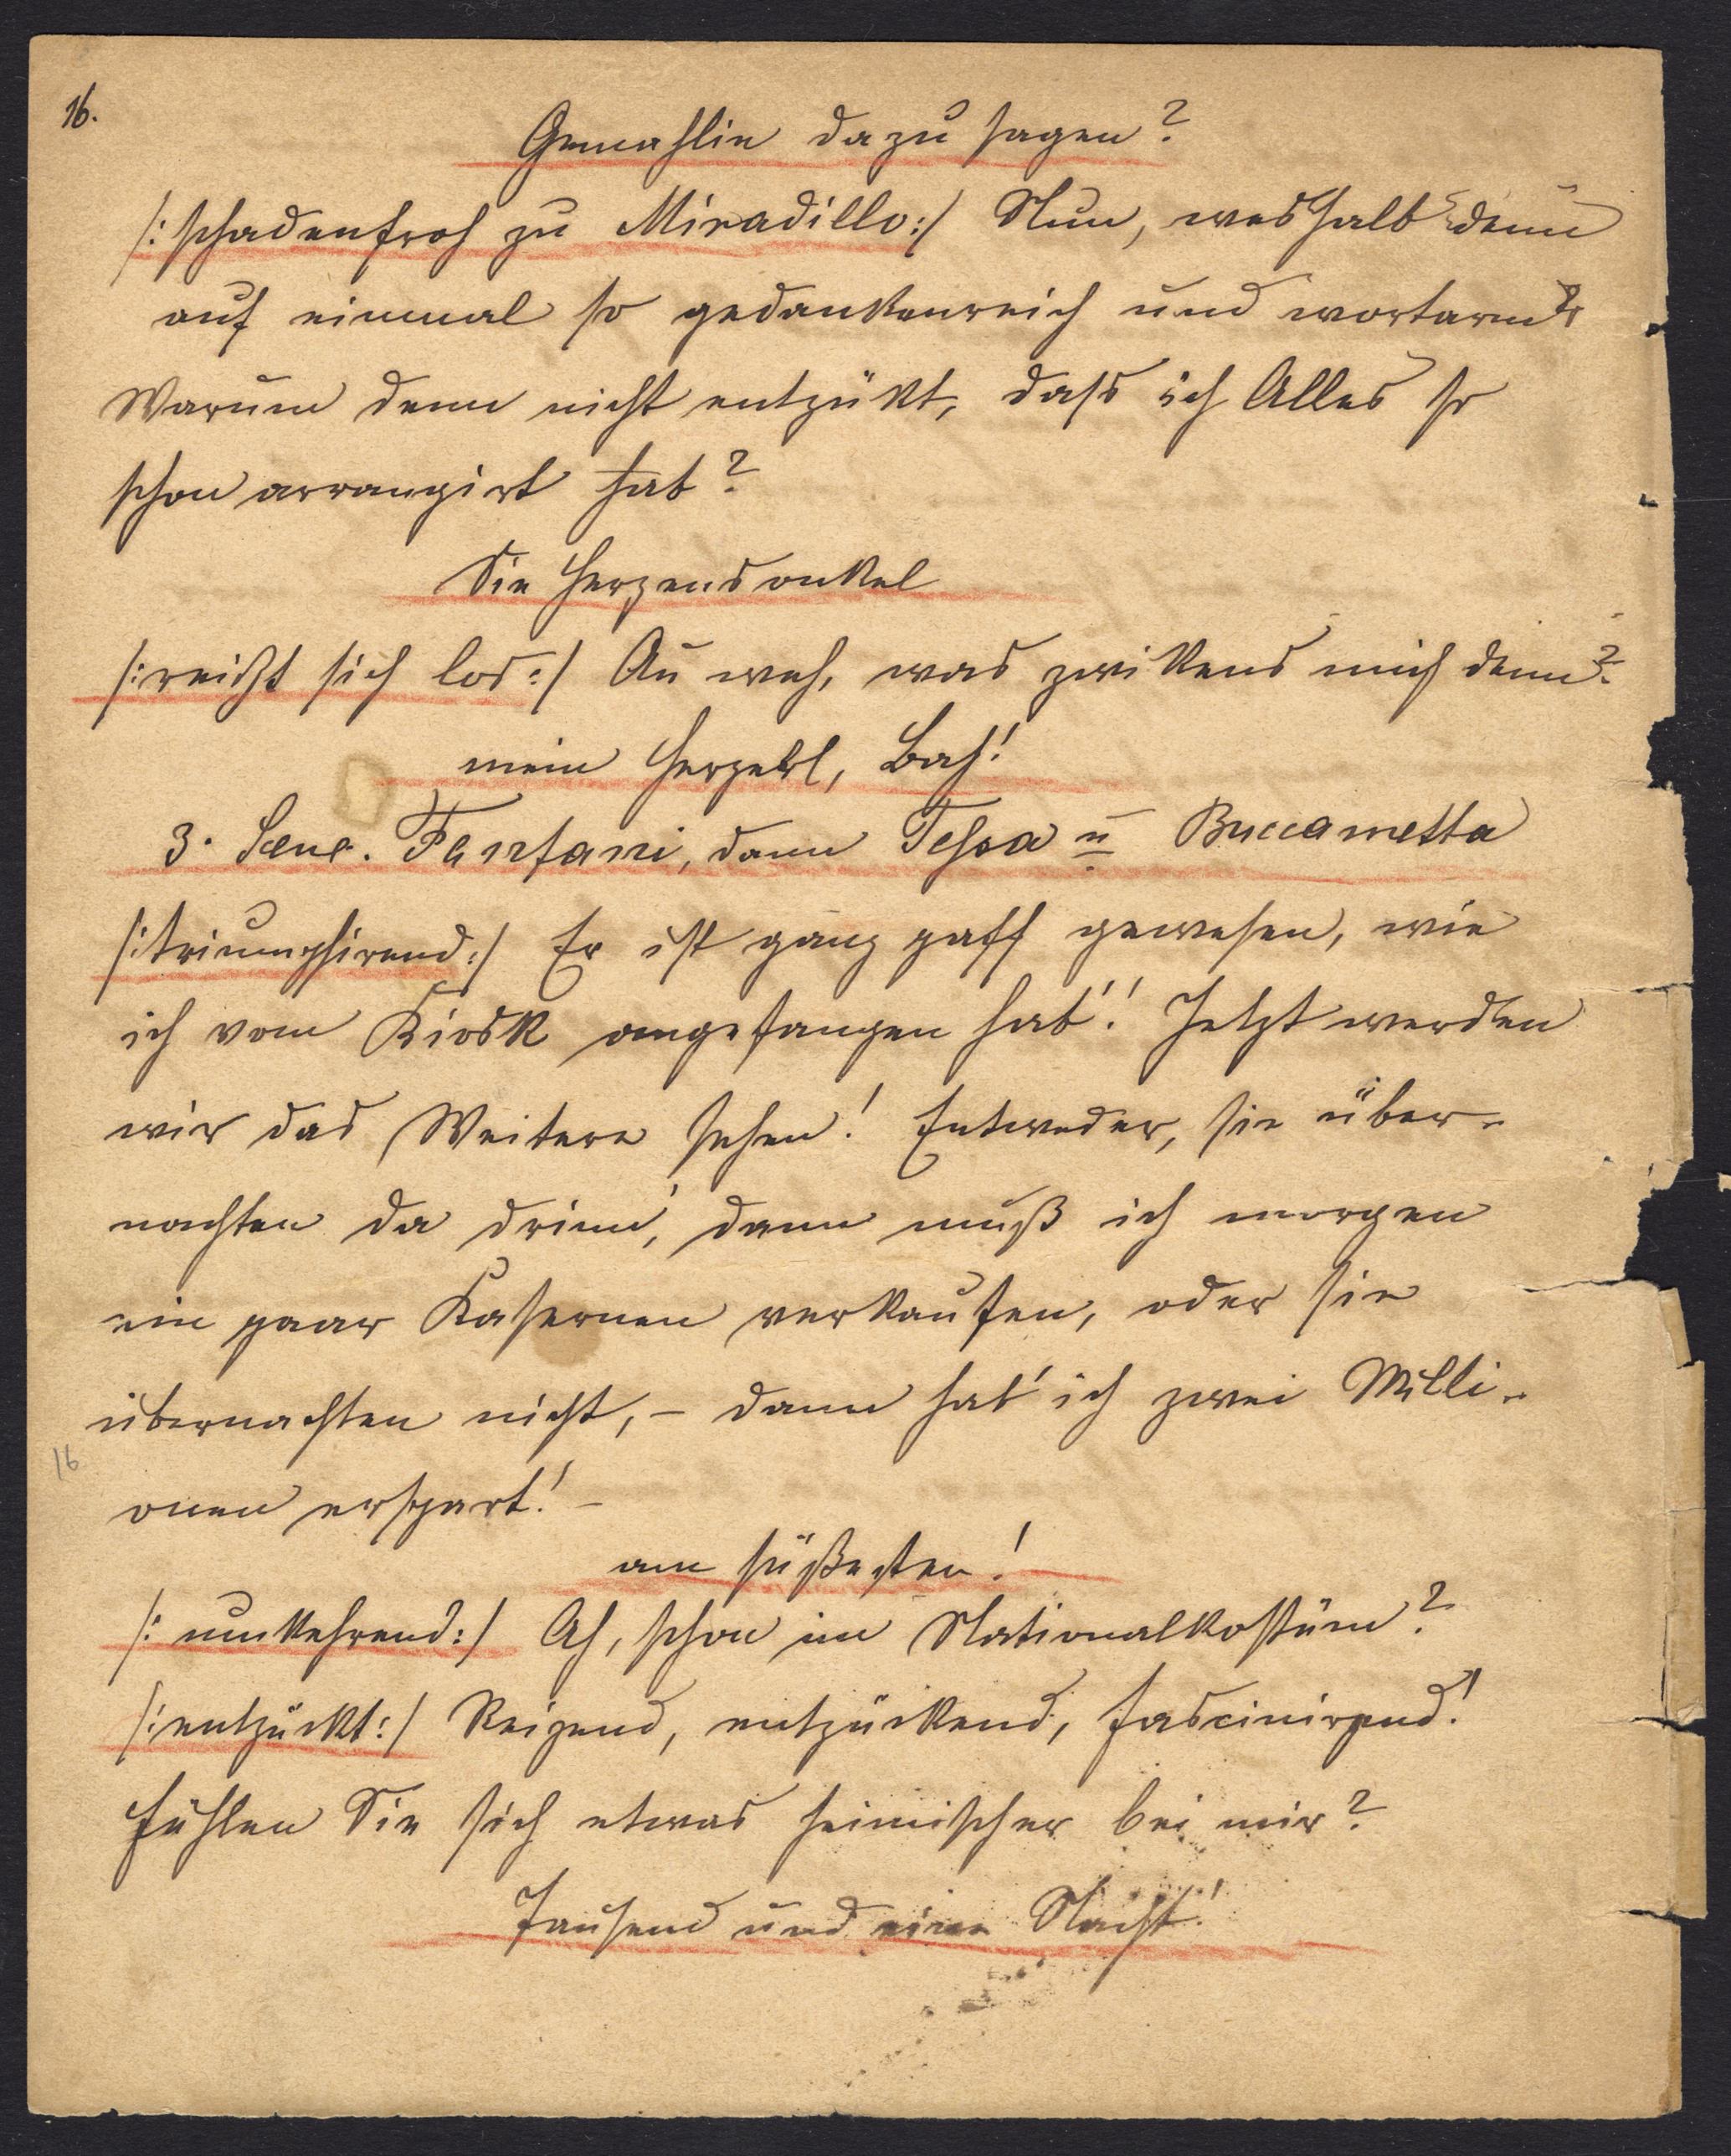 16.
Gemahlin dazu sagen?
/: schadenfroh zu Miradillo :/ Nun, weshalb denn
auf einmal so gedankenreich und wortarm?
Warum denn nicht entzükt, dass ich Alles so
schon arrangirt hab?
Sie Herzensonkel
/: reißt sich los :/ Au weh, was zwikens mich denn?
mein Herzerl, Bah!
3. Scene. Fanfani, dann Tessa u Buccametta
/: triumphirend :/ Er ist ganz paff gewesen, wie
ich vom Kiosk angefangen hab'! Jetzt werden
wir das Weitere sehen! Entweder, sie über-
nachten da drinn', dann muß ich morgen
ein paar Kasernen verkaufen, oder sie
übernachten nicht, – dann hab' ich zwei Milli-
onen erspart! –
16
am süßesten!
/: umkehrend :/ Ah, schon im Nationalkostüm?
/: entzückt :/ Reizend, entzückend, fascinirend!
Fühlen Sie sich etwas heimischer bei mir?
Tausend und eine Nacht!